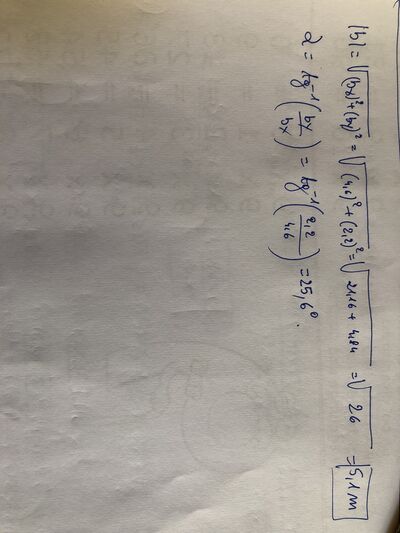 |b| = √(bx)²+(by)² = √(4,6)²+(2,2)² = √21,16 + 4,84 = √26 = 5,1 m
α = tg⁻¹(by/bx) = tg⁻¹(2,2/4,6) = 25,6°.